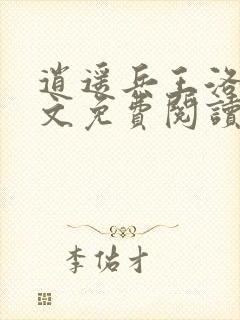 逍遥兵王洛
文免费閱讀
李佑才